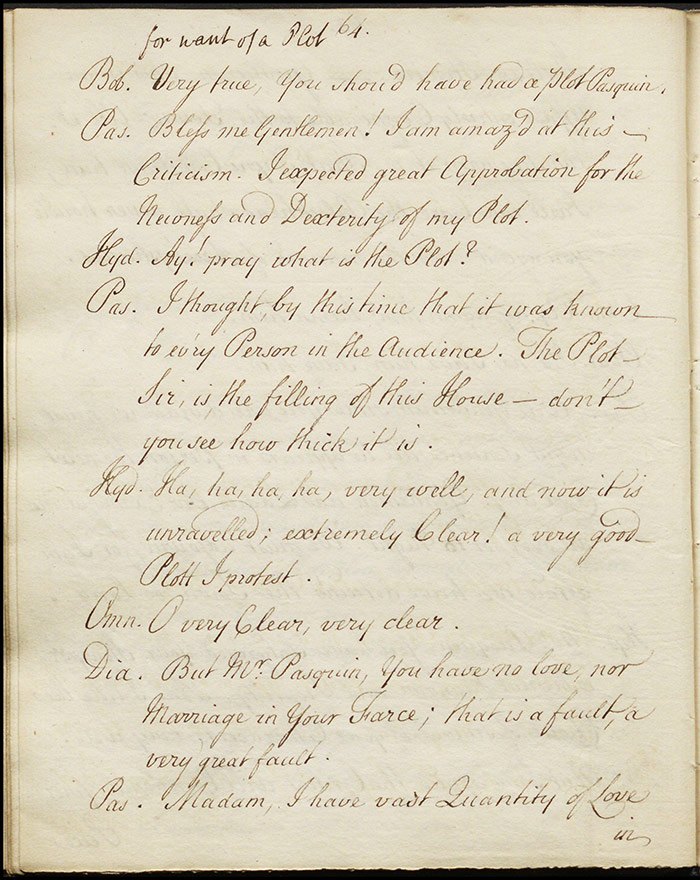 for want of a Plot 64.
Bob. Very true, You shou'd have had a plot Pasquin.
Pas. Bless me Gentlemen! I am amaz'd at this
Criticism. I expected great Approbation for the
Newness and Dexterity of my Plot.
Hyd. Ay! pray what is the Plot?
Pas. I thought, by this time that it was known
to ev'ry Person in the Audience. The Plot
Sir, is the filling of this House — don't
you see how thick it is.
Hyd. Ha, ha, ha, ha, very well, and now it is
unravelled; extremely Clear! a very good
Plott I protest.
Omn. O very Clear, very clear.
Dia. But Mr. Pasquin, You have no love, nor
Marriage in Your Farce; that is a fault, a
very great fault.
Pas. Madam, I have vast Quantity of Love
in